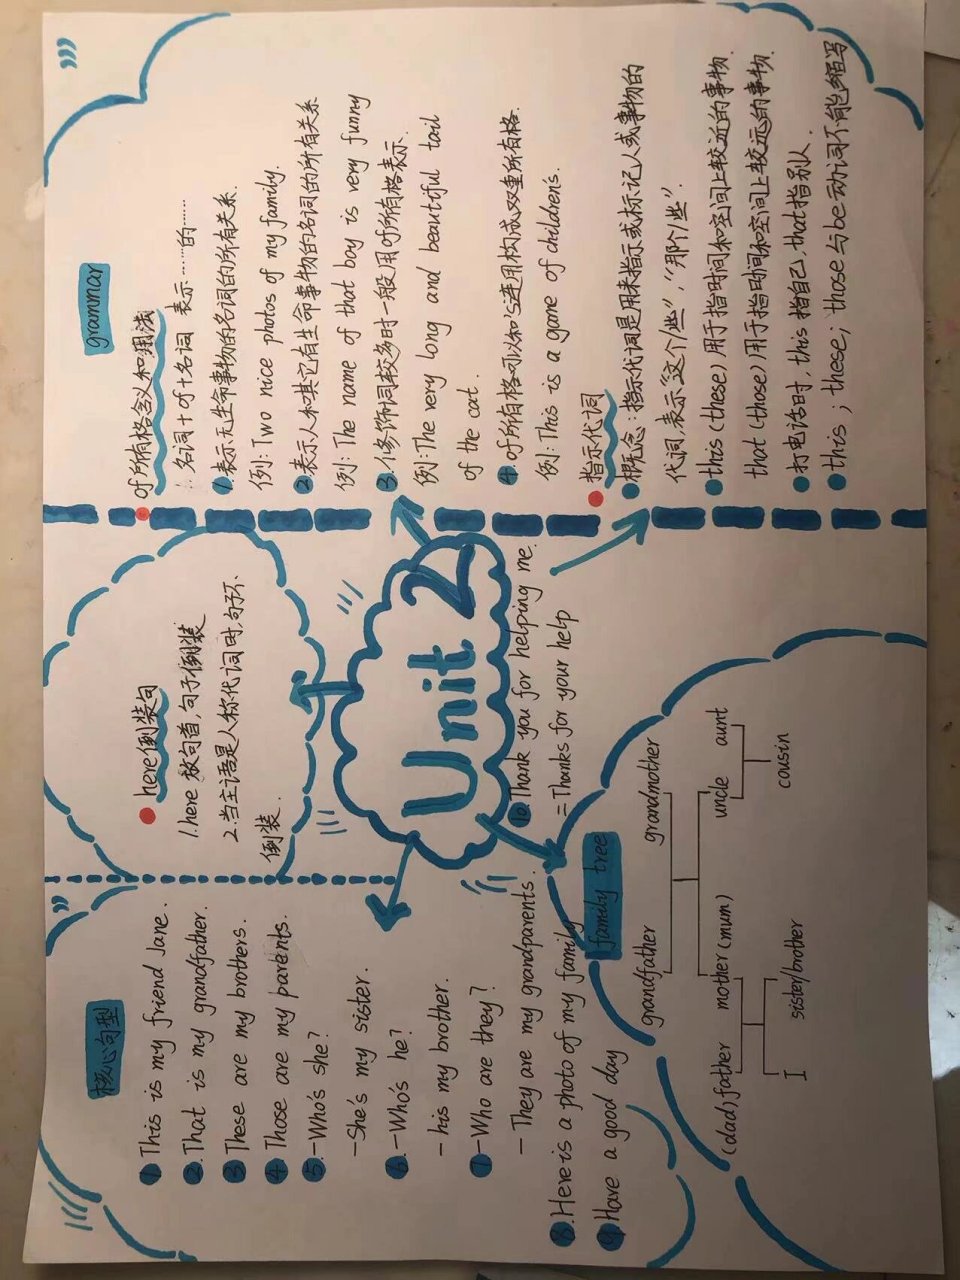 核心句型
① This is my friend Jane.
②. That is my grandfather.
③ These are my brothers.
④ Those are my parents.
⑤. -Who's she?
-She's my sister.
⑥. -Who's he?
- his my brother.
⑦ -Who are they?
- They are my grandparents.
⑧. Here is a photo of my family
⑨ Have a good day
here倒装句
1. here 放句首,句子倒装
2. 当主语是人称代词时,句子不
倒装.
Unit 2
⑩. Thank you for helping me.
= Thanks for your help
family tree
grandfather grandmother
(dad)father mother (mum) uncle aunt
I sister/brother cousin
grammar
of 所有格含义和用法
名词+of+名词 表示……的……
1. 表示无生命事物的名词的所有关系.
例: Two nice photos of my family.
2. 表示人和其它有生命事物的名词的所有关系
例: The name of that boy is very funny
3. 修饰词较多时一般用of所有格表示.
例: The very long and beautiful tail
of the cat.
4. of所有格可以和's连用构成双重所有格.
例: This is a game of children's.
指示代词
概念: 指示代词是用来指示或标记人或事物的
代词 表示"这个/些","那个/些".
this (these) 用于指时间和空间上较近的事物.
that (those) 用于指时间和空间上较远的事物.
打电话时, this 指自己, that 指别人.
this; these; those 与be动词不能缩写